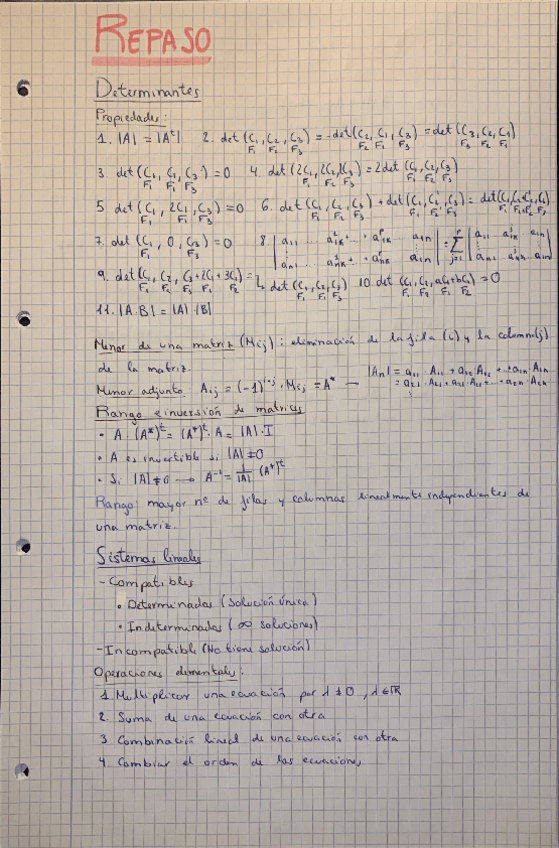 REPASO
Determinantes
Propiedades:
1. |A| = |Aᵗ| 2. det (C₁, C₂, C₃) = -det(C₂, C₁, C₃) = det (C₃, C₂, C₁)
F₁ F₂ F₃ F₂ F₁ F₃ F₃ F₂ F₁
3. det (C₁, C₁, C₃) = 0 4. det (2C₁, C₂, C₃) = 2 det (C₁, C₂, C₃)
F₁ F₁ F₃ F₁ F₂ F₃ F₁ F₂ F₃
5 det (C₁, 2C₁, C₃) = 0 6. det (C₁, C₂, C₃) + det (C₁, C₂', C₃) = det
F₁ F₁ F₃ F₁ F₂ F₃ F₁ F₂' F₃
7. det (C₁, 0, C₃) = 0 8. a₁₁ a₁ₙ
F₁ F₃ aₙ₁
9. det(C₁, C₂, C₃+2C₁+3C₂) = det (C₁, C₂, C₃) 10. det (C₁, C₂, aC₁+bC₂) = 0
F₁ F₂ F₃ F₁ F₂ F₁ F₂ F₃ F₁ F₂ F₁ F₂
11. |A·B| = |A|·|B|
Menor de una matriz (Mij): eliminación de la fila (i) y la columna(j)
de la matriz.
Menor adjunto: Aij = (-1)ⁱ⁺ʲ · Mij = A* — |An| = a₁₁ · A₁₁ + a₁₂ A₁₂ + ... + a₁ₙ A₁ₙ
= a₂₁ · A₂₁ + a₂₂ · A₂₂ + ... + a₂ₙ A₂ₙ
Rango e inversión de matrices
• A · (A*)ᵗ = (A*)ᵗ · A = |A| · I
• A es invertible si |A| ≠ 0
• Si |A| ≠ 0 → A⁻¹ = 1/|A| (A*)ᵗ
Rango: mayor nº de filas y columnas linealmente independientes de
una matriz.
Sistemas lineales
- Compatibles
• Determinados (Solución única)
• Indeterminados (∞ soluciones)
- Incompatible (No tiene solución)
Operaciones elementales:
1. Multiplicar una ecuación por λ ≠ 0, λ ∈ ℝ
2. Suma de una ecuación con otra
3. Combinación lineal de una ecuación con otra
4. Cambiar el orden de las ecuaciones